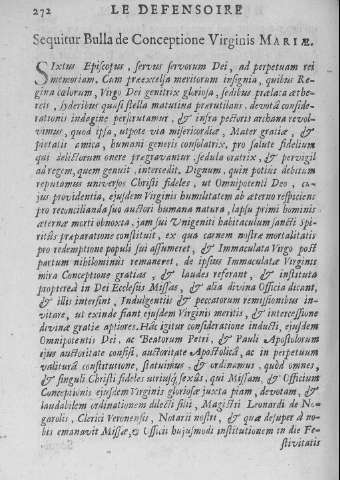 272 LE DEFENSOIRE
Sequitur Bulla de Conceptione Virginis MARIÆ.
SIxtus Episcopus, servus servorum Dei, ad perpetuam rei
memoriam. Cum præexcelsa meritorum insignia, quibus Re-
gina cœlorum, Virgo Dei genitrix gloriosa, sedibus prælata æthe-
reis, syderibus quasi stella matutina prærutilans, devotâ conside-
rationis indagine perscrutamur, & infra pectoris archana revol-
vimus, quod ipsa, utpote via misericordiæ, Mater gratiæ, &
pietatis amica, humani generis consolatrix, pro salute fidelium
qui delictorum onere pregravantur, sedula oratrix, & pervigil
ad regem, quem genuit, intercedit. Dignum, quin potius debitum
reputamus universos Christi fideles, ut Omnipotenti Deo, cu-
jus providentia, ejusdem Virginis humilitatem ab æterno respiciens
pro reconcilianda suo auctori humana natura, lapsu primi hominis
æternæ morti obnoxia, jam sui Unigeniti habitaculum sancti Spi-
ritûs præparatione constituit, ex qua carnem nostræ mortalitatis
pro redemptione populi sui assumeret, & Immaculata Virgo post
partum nihilominus remaneret, de ipsius Immaculatæ Virginis
mira Conceptione gratias, & laudes referant, & instituta
propterea in Dei Ecclesiis Missas, & alia divina Officia dicant,
& illis intersint, Indulgentiis & peccatorum remissionibus in-
vitare, ut exinde fiant ejusdem Virginis meritis, & intercessione
divinæ gratiæ aptiores. Hâc igitur consideratione inducti, ejusdem
Omnipotentis Dei, ac Beatorum Petri, & Pauli Apostolorum
ejus auctoritate confisi, auctoritate Apostolicâ, ac in perpetuum
valiturâ constitutione, statuimus & ordinamus, quod omnes,
& singuli Christi fideles utriusq; sexûs, qui Missam, & Officium
Conceptionis ejusdem Virginis gloriosæ juxta piam, devotam, &
laudabilem ordinationem dilecti filii, Magistri Leonardi de No-
garolis, Clerici Veronensis, Notarii nostri, & quæ desuper à no-
bis emanavit Missæ, & Officii hujusmodi institutionem in die Fe-
stivitatis